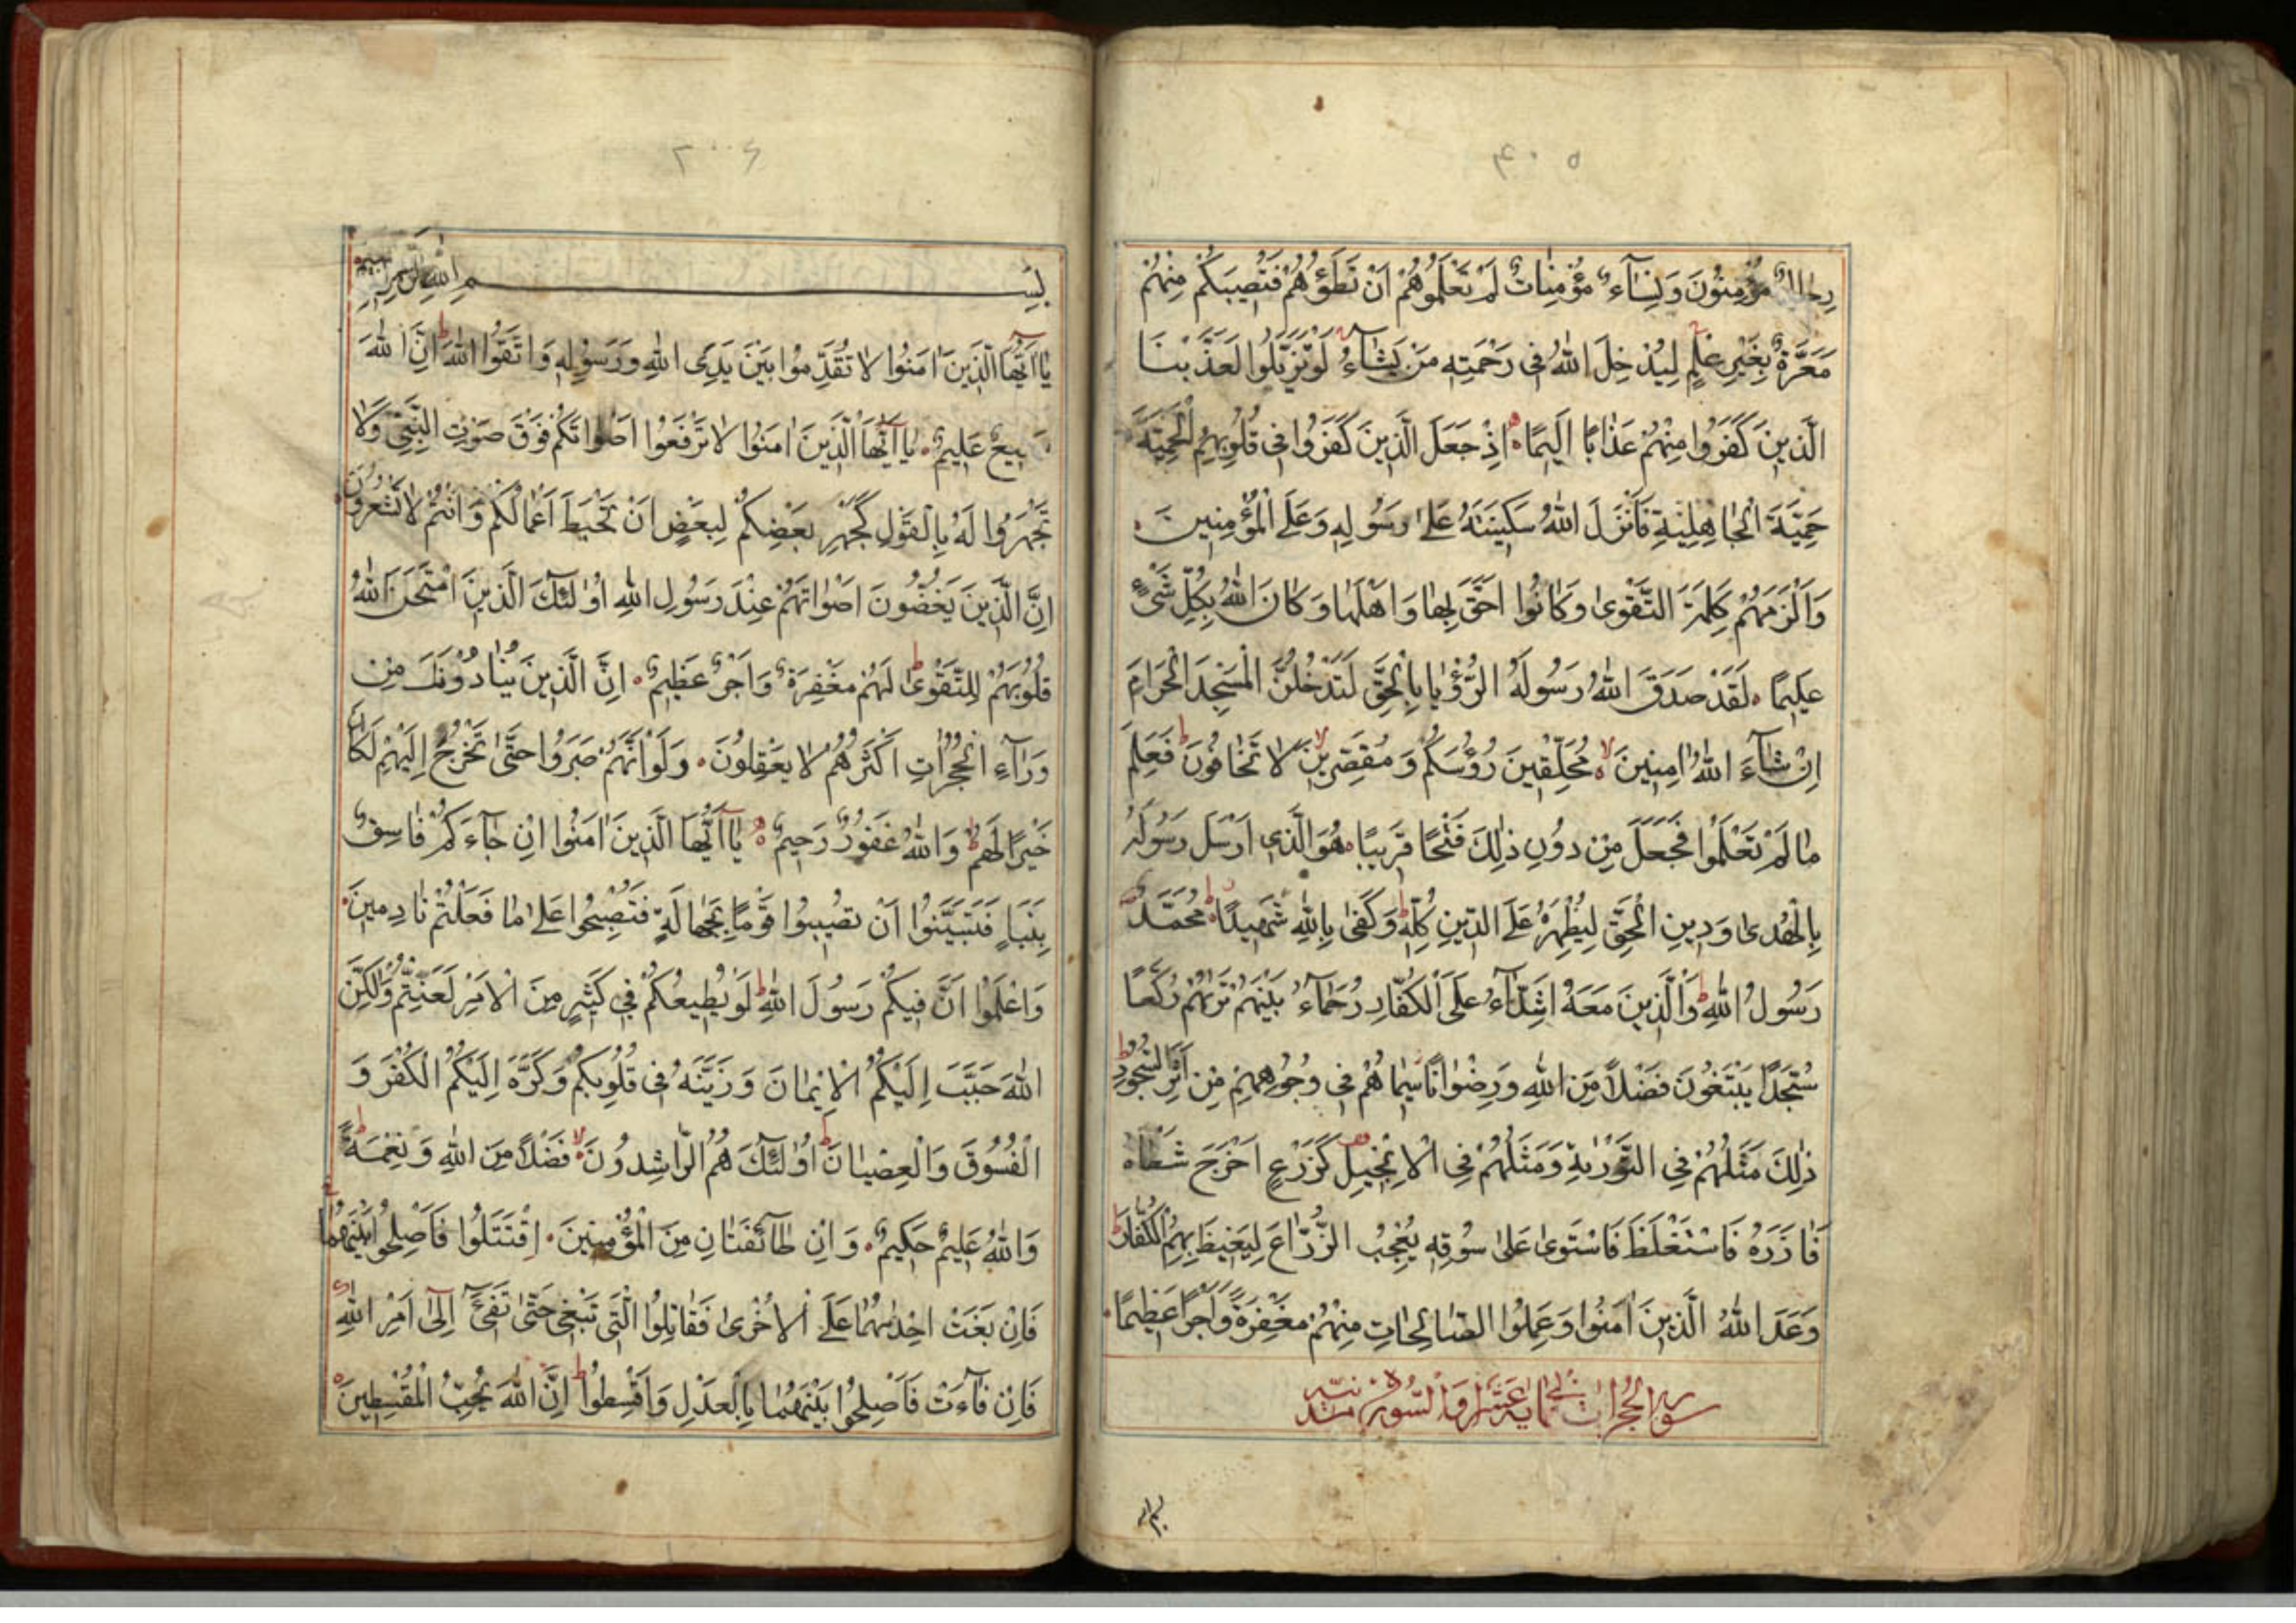 ۴۰۵
رجال مؤمنون ونساء مؤمنات لم تعلموهم ان تطؤهم فتصيبكم منهم
معرة بغير علم ليدخل الله في رحمته من يشاء لو تزيلوا لعذبنا
الذين كفروا منهم عذابا اليما اذ جعل الذين كفروا في قلوبهم الحمية
حمية الجاهلية فانزل الله سكينته على رسوله وعلى المؤمنين
والزمهم كلمة التقوى وكانوا احق بها واهلها وكان الله بكل شيء
عليما لقد صدق الله رسوله الرؤيا بالحق لتدخلن المسجد الحرام
ان شاء الله امنين محلقين رؤسكم ومقصرين لا تخافون فعلم
ما لم تعلموا فجعل من دون ذلك فتحا قريبا هو الذي ارسل رسوله
بالهدى ودين الحق ليظهره على الدين كله وكفى بالله شهيدا محمد
رسول الله والذين معه اشداء على الكفار رحماء بينهم تريهم ركعا
سجدا يبتغون فضلا من الله ورضوانا سيماهم في وجوههم من اثر السجود
ذلك مثلهم في التورية ومثلهم في الانجيل كزرع اخرج شطأه
فازره فاستغلظ فاستوى على سوقه يعجب الزراع ليغيظ بهم الكفار
وعد الله الذين امنوا وعملوا الصالحات منهم مغفرة واجرا عظيما
سورة الحجرات
بسم الله
۴۰۶
بسم الله الرحمن الرحيم
يا ايها الذين امنوا لا تقدموا بين يدي الله ورسوله واتقوا الله ان الله
سميع عليم يا ايها الذين امنوا لا ترفعوا اصواتكم فوق صوت النبي ولا
تجهروا له بالقول كجهر بعضكم لبعض ان تحبط اعمالكم وانتم لا تشعرون
ان الذين يغضون اصواتهم عند رسول الله اولئك الذين امتحن الله
قلوبهم للتقوى لهم مغفرة واجر عظيم ان الذين ينادونك من
وراء الحجرات اكثرهم لا يعقلون ولو انهم صبروا حتى تخرج اليهم لكان
خيرا لهم والله غفور رحيم يا ايها الذين امنوا ان جاءكم فاسق
بنبا فتبينوا ان تصيبوا قوما بجهالة فتصبحوا على ما فعلتم نادمين
واعلموا ان فيكم رسول الله لو يطيعكم في كثير من الامر لعنتم ولكن
الله حبب اليكم الايمان وزينه في قلوبكم وكره اليكم الكفر و
الفسوق والعصيان اولئك هم الراشدون فضلا من الله ونعمة
والله عليم حكيم وان طائفتان من المؤمنين اقتتلوا فاصلحوا بينهما
فان بغت احديهما على الاخرى فقاتلوا التي تبغي حتى تفئ الى امر الله
فان فاءت فاصلحوا بينهما بالعدل واقسطوا ان الله يحب المقسطين